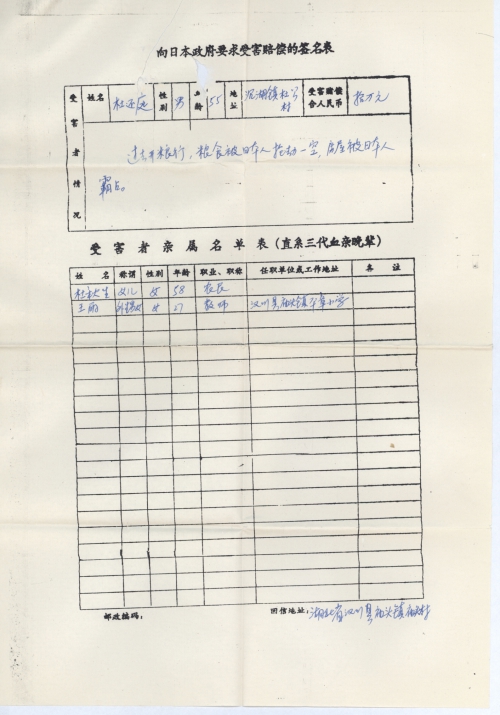 向日本政府要求受害赔偿的签名表
受害者情况
姓名 杜还庭 性别 男 年龄 55 地址 泥湖镇杜公村 受害赔偿合人民币 拾万元
过去开粮行，粮食被日本人抢劫一空，房屋被日本人
霸占。
受害者亲属名单表（直系三代血亲晚辈）
姓名 称谓 性别 年龄 职业、职称 任职单位或工作地址 备注
杜 生 女儿 女 58 农民
王丽 外孙女 女 27 教师 汉川县庙头镇 小学
邮政编码： 回信地址：湖北省汉川县庙头镇庙头村